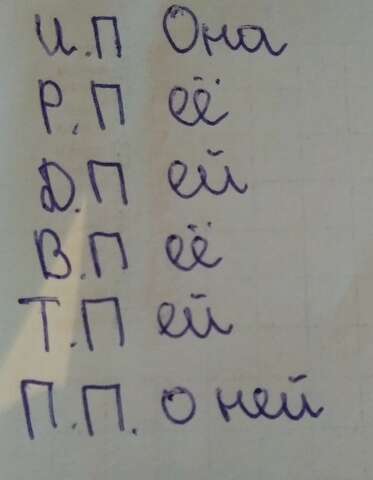 И.П Она
Р.П её
Д.П ей
В.П её
Т.П ей
П.П. о ней